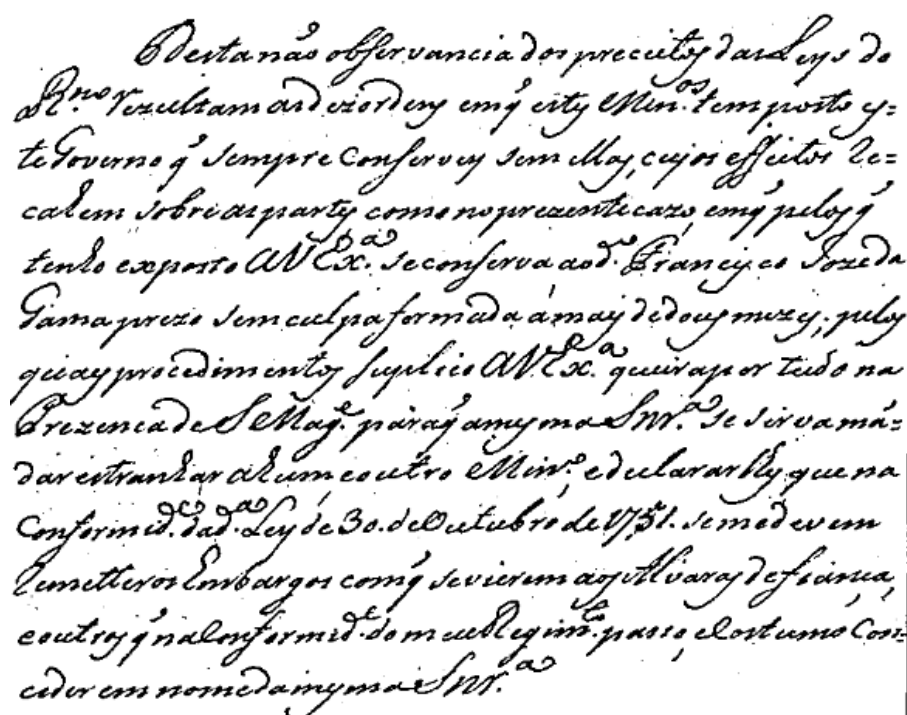 Desta não observancia dos preceitos das Leys do
R.no rezultam as dezordens em q̃ estes Min.os tem posto es=
te Governo q̃ sempre conservey sem ellas, cujos effeitos re=
cahem sobre as partes como no prezente cazo, em q̃ pelos q̃
tenho exposto a V Ex.a se conserva ao d.o Francisco Joze da
Gama prezo sem culpa formada á mais de dous mezes; pelos
quaes procedimentos suplico a V. Ex.a queira por tudo na
Prezenca de S Mag.e para q̃ a mesma Snr.a se sirva mã=
dar estranhar a hum, e outro Min.o, e declarar lhes, que na
conformid.e da d.a Ley de 30. de Outubro de 1751. se me devem
remetter os Embargos com q̃ se vierem aos Alvaras de fianca,
e outros q̃ na conformid.e do meu Regim.to passo, e costumo con=
ceder em nome da mesma Snr.a